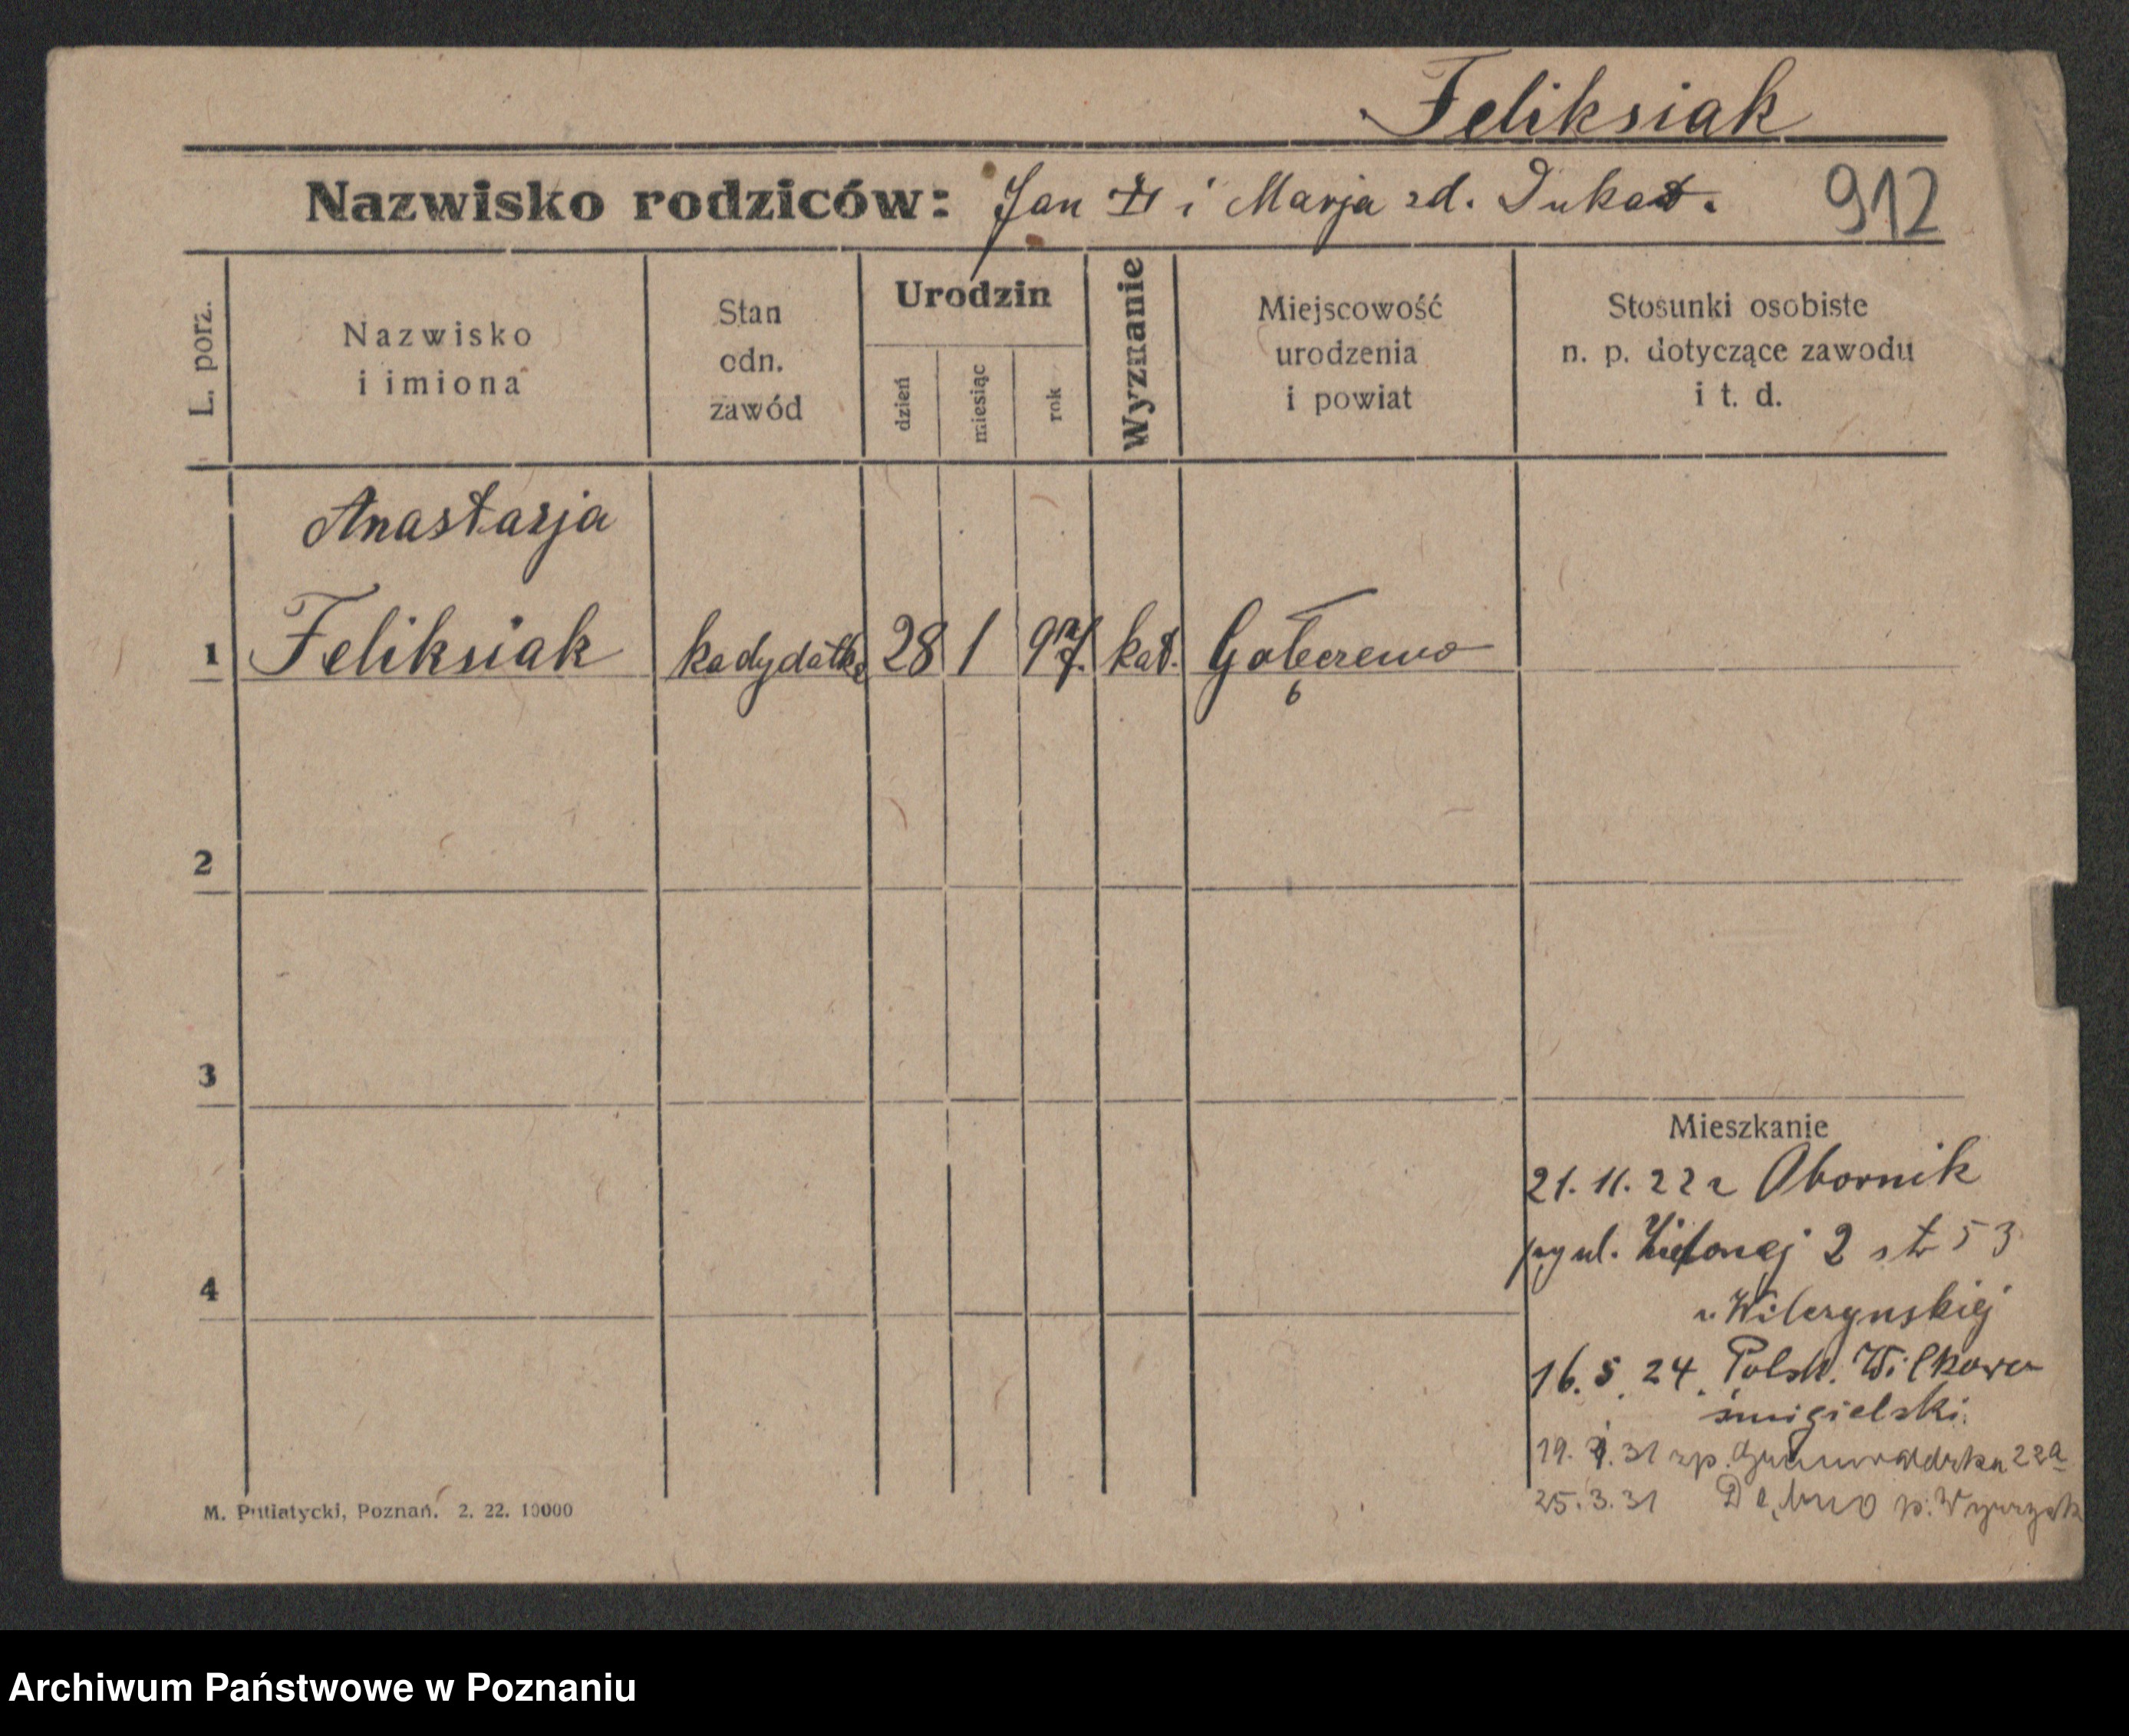 Feliksiak
Nazwisko rodziców: Jan i Marja zd. Dukat. 912
L. porz.
Nazwisko
i imiona
Stan
odn.
zawód
Urodzin
dzień
miesiąc
rok
Wyznanie
Miejscowość
urodzenia
i powiat
Stosunki osobiste
n. p. dotyczące zawodu
i t. d.
Anastazja
1 Feliksiak kadydatka 28 1 kat.
2
3
Mieszkanie
21. 11. 22 z Obornik
ul. Zielonej 2 st 53
u Wilczynskiej
4
16. 5. 24. Polsk. Wilkowo
śmigielski.
19. 31 zp. Grunwaldzka 22a
25. 3. 31 Dębno p. Wyrzysk
M. Putiatycki, Poznań. 2. 22. 10000
Archiwum Państwowe w Poznaniu